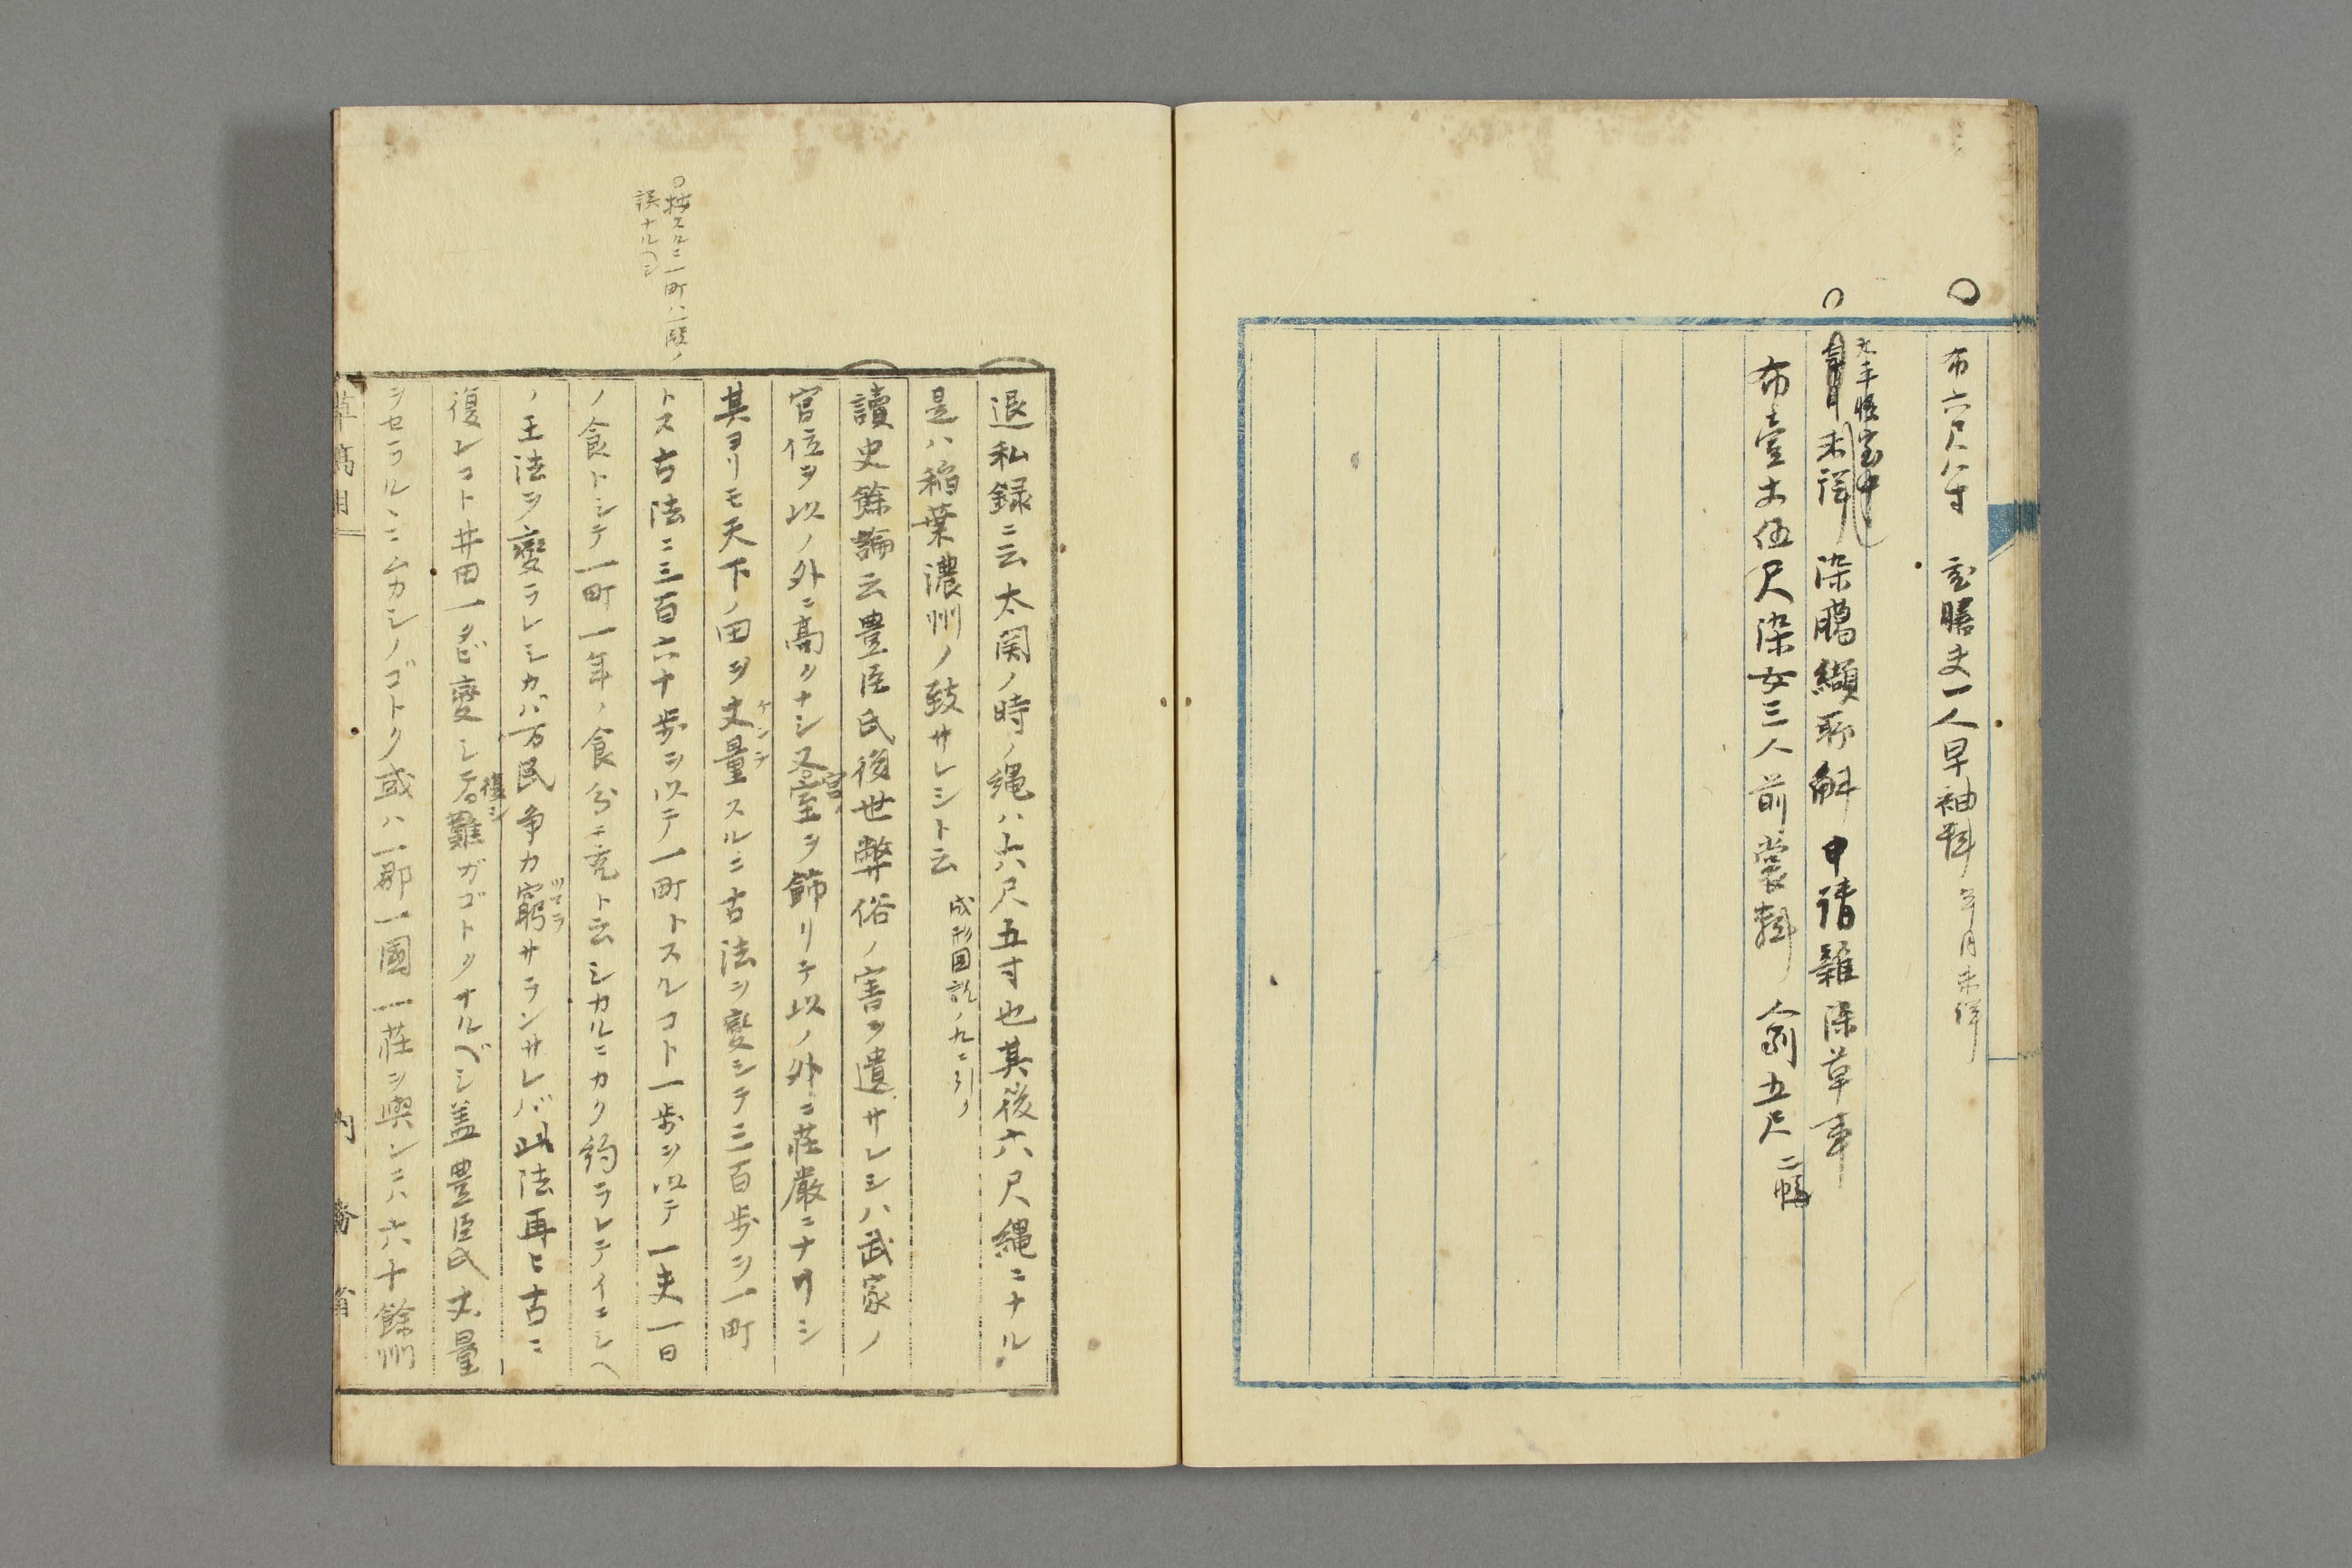 ○
布六尺八寸 玄膳夫一人早袖料 年月未詳
○
天平勝宝中
未詳 染臈纈所解 申請雑染草事
布壹丈伍尺染女三人前裳料 人別五尺 二幅
○按スルニ一町ハ一段ノ
誤ナルヘシ
退私録ニ云太閤ノ時ノ縄ハ六尺五寸也其後六尺縄ニナル
是ハ稲葉濃州ノ致サレシト云 成形国説ノ九ニ引ク
讀史餘論云豊臣氏後世弊俗ノ害ヲ遺サレシハ武家ノ
官位ヲ以ノ外ニ高クナシ又宮室ヲ飾リテ以ノ外ニ荘厳ニナリシ
其ヨリモ天下ノ田ヲ丈量スルニ古法ヲ變シテ三百歩ヲ一町
トス古法ニ三百六十歩ヲ以テ一町トスルコト一歩ヲ以テ一夫一日
ノ食トシテ一町一年ノ食分ニ充ト云シカルニカク約ラレテイニシヘ
ノ王法ヲ變ラレシカバ万民争カ窮サランサレバ此法再ヒ古ニ
復シコト井田一タビ變シテ復シ難ガゴトクナルベシ蓋豊臣氏丈量
ヲセラルヽニムカシノゴトク或ハ一郡一國一荘ヲ興ンニハ六十餘州
草稿用
内務省